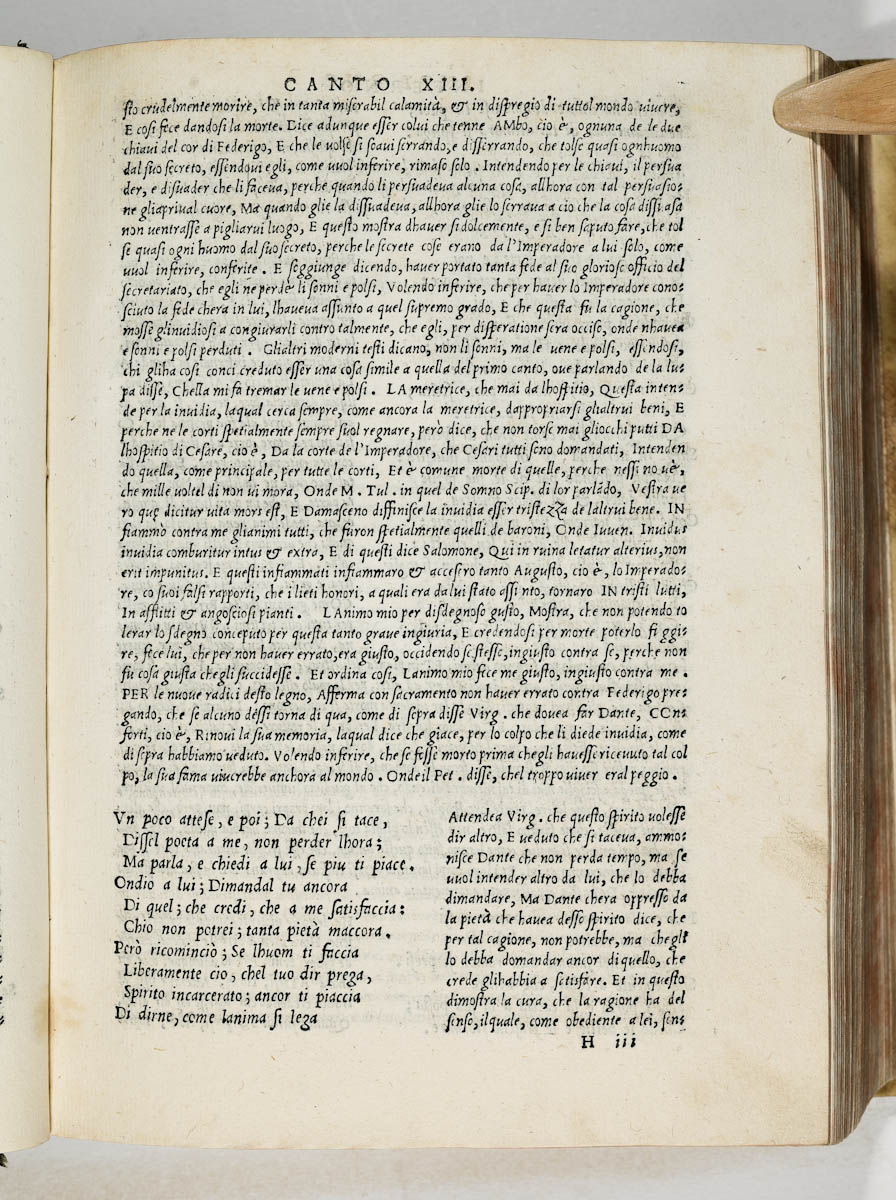 CANTO XIII.
sto crudelmente morire, che in tanta miserabil calamità, & in dispregio di tuttol mondo uiuere,
E cosi fece dandosi la morte. Dice adunque esser colui che tenne AMbo, cio è, ognuna de le due
chiaui del cor di Federigo, E che le uolse si soaui serrando, e disserrando, che tolse quasi ognhuomo
dal suo secreto, essendoui egli, come uuol inferire, rimaso solo. Intendendo per le chiaui, il persua
der, e disuader che li faceua, perche quando li persuadeua alcuna cosa, allhora con tal persuasio-
ne gliapriual cuore, Ma quando glie la dissuadeua, allhora glie lo serraua a cio che la cosa dissuasa
non uentrasse a pigliarui luogo, E questo mostra dhauer si dolcemente, e si ben saputo fare, che tol
se quasi ogni huomo dal suo secreto, perche le secrete cose erano da l'Imperadore a lui solo, come
uuol inferire, conferite. E soggiunge dicendo, hauer portato tanta fede al suo glorioso officio del
secretariato, che egli ne perdè li sonni e polsi, Volendo inferire, che per hauer lo Imperadore cono-
sciuto la fede chera in lui, lhaueua assunto a quel supremo grado, E che questa fu la cagione, che
mosse glinuidiosi a congiurarli contro talmente, che egli, per disperatione sera occiso, onde nhauea
e sonni e polsi perduti. Glialtri moderni testi dicano, non li sonni, ma le uene e polsi, essendosi,
chi gliha cosi conci creduto esser una cosa simile a quella del primo canto, oue parlando de la lu-
pa disse, Chella mi fa tremar le uene e polsi. LA meretrice, che mai da lhospitio, Questa inten-
de per la inuidia, laqual cerca sempre, come ancora la meretrice, dappropriarsi glialtrui beni, E
perche ne le corti spetialmente sempre suol regnare, però dice, che non torse mai gliocchi putti DA
lhospitio di Cesare, cio è, Da la corte de l'Imperadore, che Cesari tutti sono domandati, Intenden
do quella, come principale, per tutte le corti, Et è comune morte di quelle, perche nessi no uè,
che mille uoltel di non ui mora, Onde M. Tul. in quel de Somno Scip. di lor parlãdo, Vestra ue
ro quę dicitur uita mors est, E Damasceno diffinisce la inuidia esser tristezza de laltrui bene. IN
fiammò contra me glianimi tutti, che furon spetialmente quelli de baroni, Onde Iuuen. Inuidus
inuidia comburitur intus & extra, E di questi dice Salomone, Qui in ruina letatur alterius, non
erit impunitus. E questi infiammati infiammaro & accesero tanto Augusto, cio è, lo Imperado-
re, co suoi falsi rapporti, che i lieti honori, a quali era da lui stato assi nto, tornaro IN tristi lutti,
In afflitti & angosciosi pianti. LAnimo mio per disdegnoso gusto, Mostra, che non potendo to
lerar lo sdegno conceputo per questa tanto graue ingiuria, E credendosi per morte poterlo fi ggi-
re, fece lui, che per non hauer errato, era giusto, occidendo se stesse, ingiusto contra se, perche non
fu cosa giusta chegli succidesse. Et ordina cosi, Lanimo mio fece me giusto, ingiusto contra me.
PER le nuoue radici desto legno, Afferma con sacramento non hauer errato contra Federigo pre-
gando, che se alcuno dessi torna di qua, come di sopra disse Virg. che douea far Dante, COn-
forti, cio è, Rinoui la sua memoria, laqual dice che giace, per lo colpo che li diede inuidia, come
di sopra habbiamo ueduto. Volendo inferire, che se fosse morto prima chegli hauesse riceuuto tal col
po, la sua fama uiuerebbe anchora al mondo. Onde il Pet. disse, chel troppo uiuer eral peggio.
Vn poco attese, e poi; Da chei si tace,
Dissel poeta a me, non perder lhora;
Ma parla, e chiedi a lui, se piu ti piace.
Ondio a lui; Dimandal tu ancora
Di quel; che credi, che a me satisfaccia:
Chio non potrei; tanta pietà maccora.
Però ricominciò; Se lhuom ti faccia
Liberamente cio, chel tuo dir prega,
Spirito incarcerato; ancor ti piaccia
Di dirne, come lanima si lega
Attendea Virg. che questo spirito uolesse
dir altro, E ueduto che si taceua, ammo-
nisce Dante che non perda tempo, ma se
uuol intender altro da lui, che lo debba
dimandare, Ma Dante chera oppresso da
la pietà che hauea desso spirito dice, che
per tal cagione, non potrebbe, ma chegli
lo debba domandar ancor di quello, che
crede glihabbia a satisfare. Et in questo
dimostra la cura, che la ragione ha del
senso, ilquale, come obediente a lei, sen-
H iii